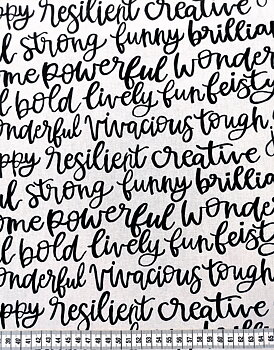 ppy resilient creative
l strong funny brillian
ome powerful wonde
l bold lively fun feisty
onderful vivacious tough
ppy resilient creative
ul strong funny brillia
ome powerful wonder
l bold lively fun feisty
onderful vivacious tough
ppy resilient creative
strong funny brillia